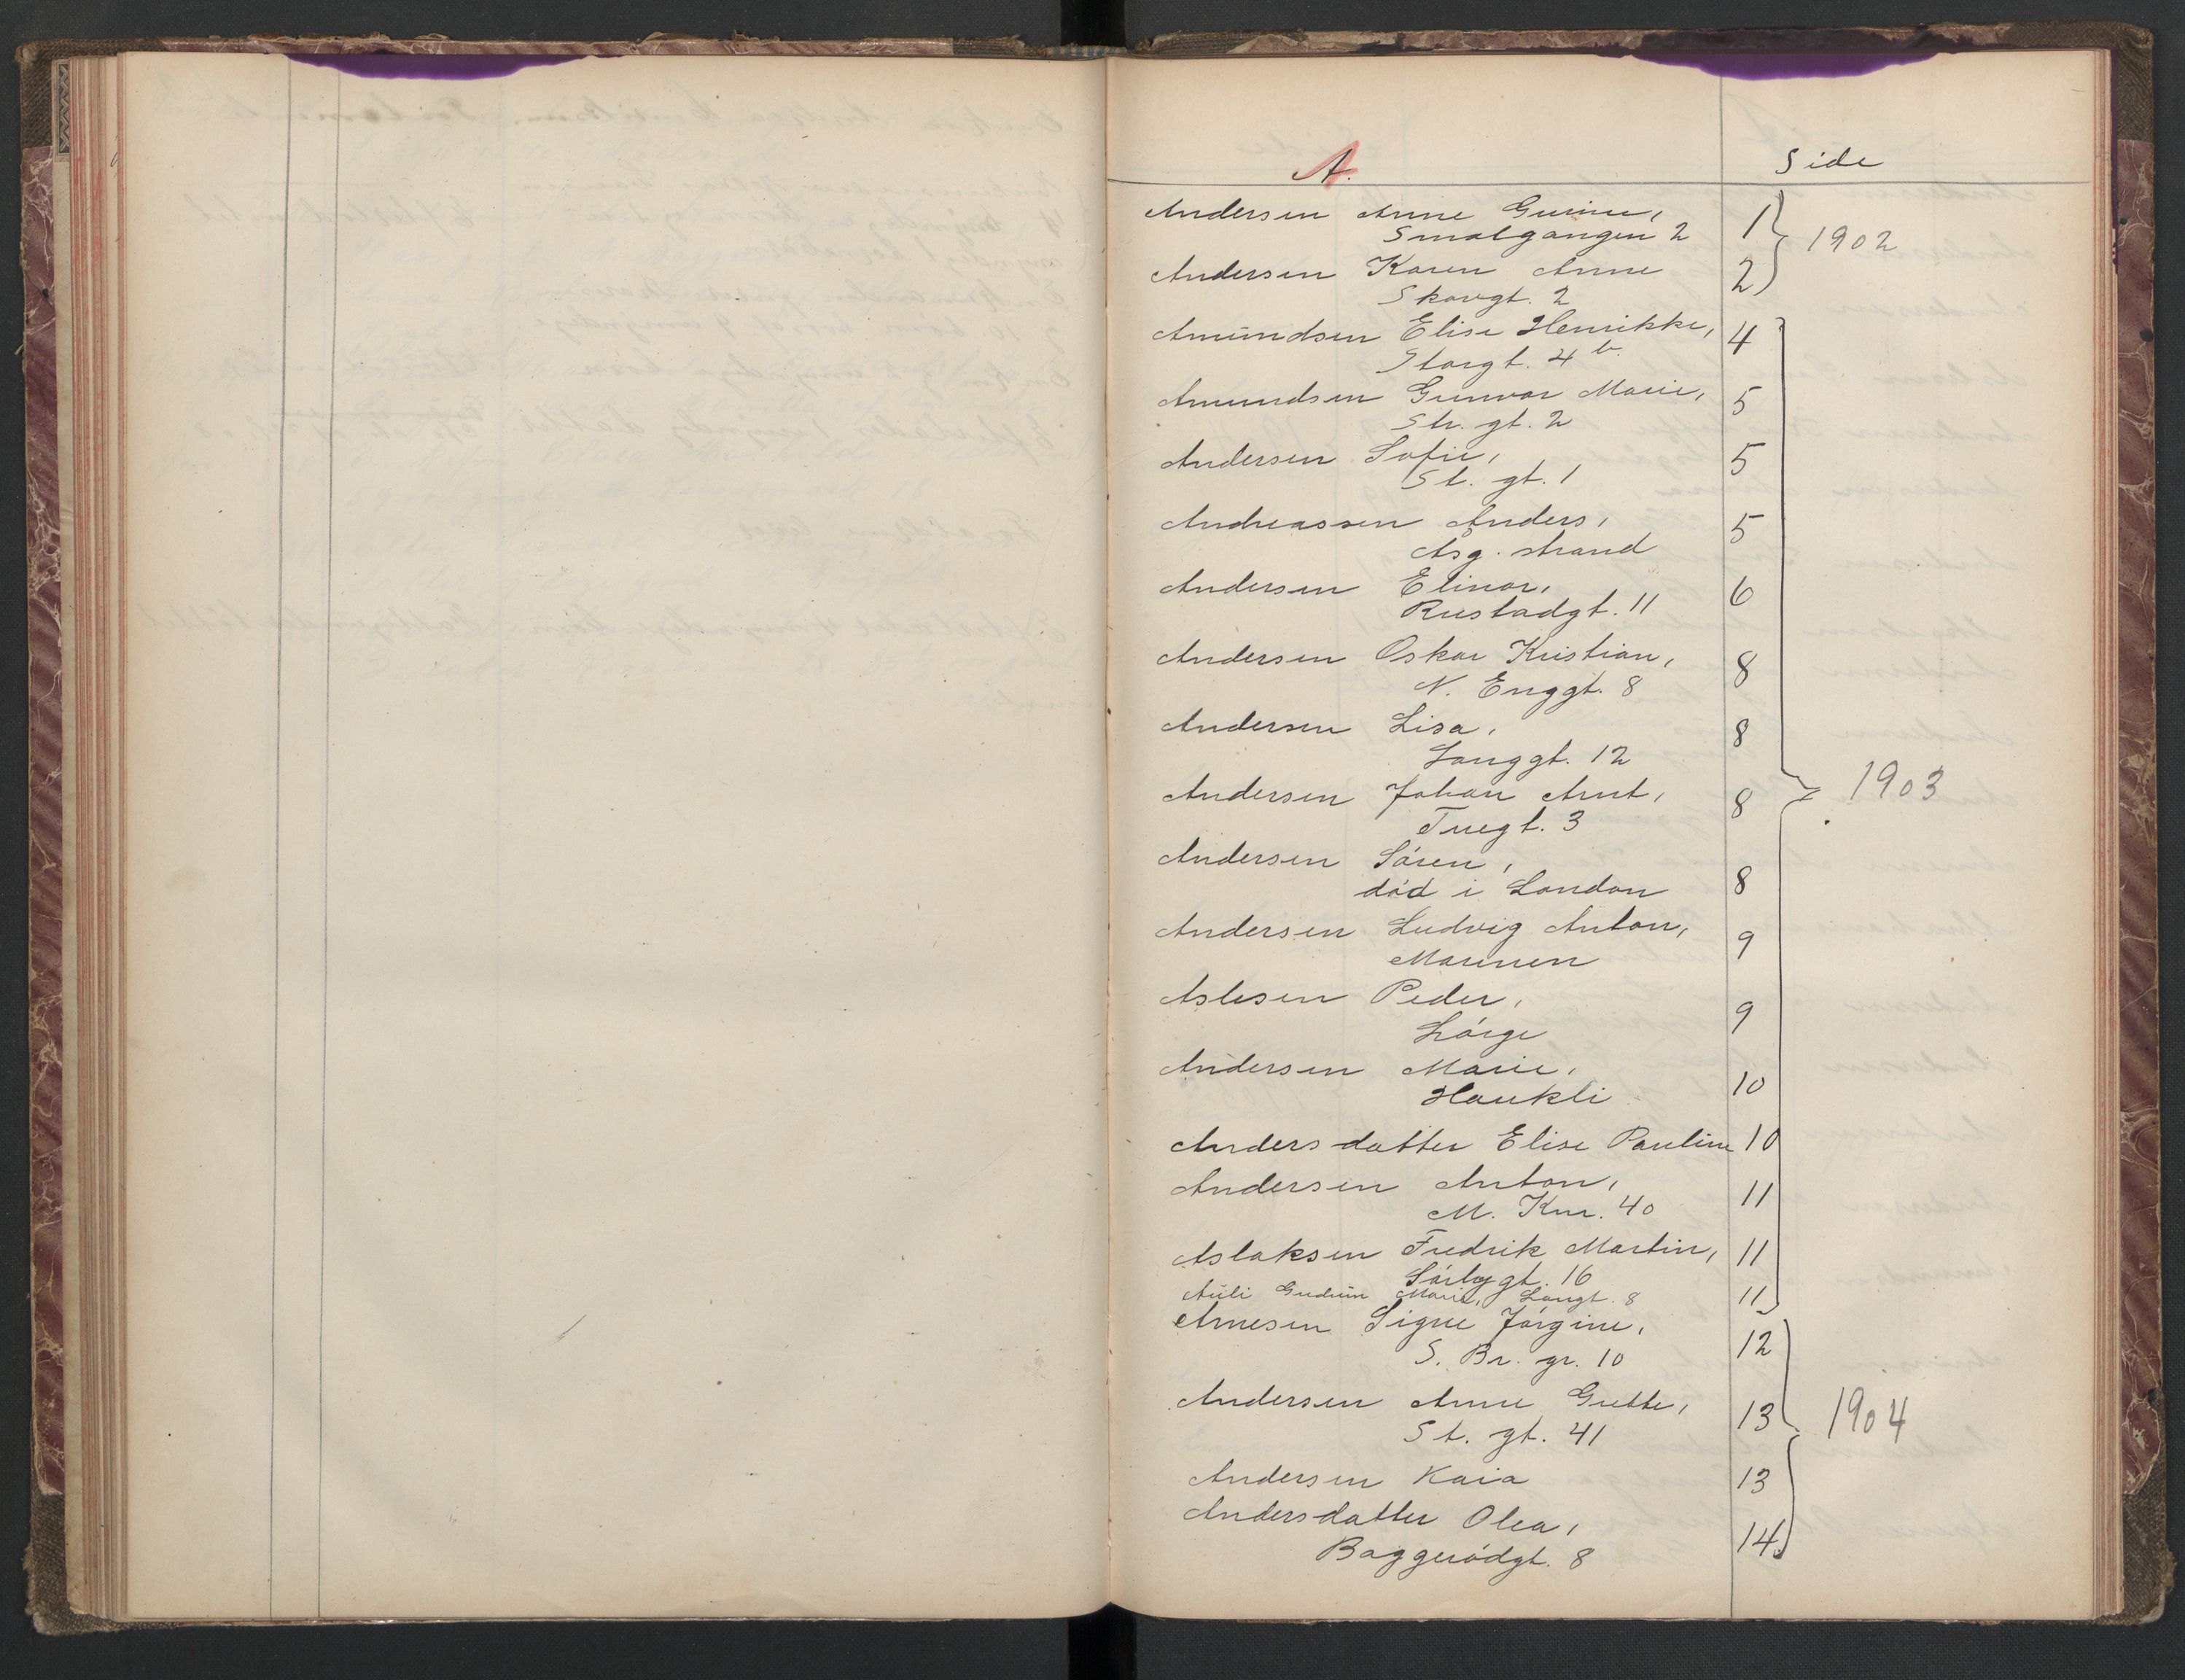 A. Side
Andersen Anne Gurine, 1
Smalgangen 2 1902
Andersen Karen Anne 2
Skovgt. 2
Amundsen Elise Henrikke, 4
Storgt. 4 b.
Amundsen Gunvor Marie, 5
Str. gt. 2
Andersen Sofie, 5
St. gt. 1
Andreassen Anders, 5
Åsg. strand
Andersen Elinor, 6
Rustadgt. 11
Andersen Oskar Kristian, 8
N. Enggt. 8
Andersen Lisa, 8
Langgt. 12
Andersen Johan Arnt, 8 1903
Tuegt. 3
Andersen Sören,
död i London 8
Andersen Ludvig Anton, 9
Marinen
Aslesen Peder, 9
Lörge
Andersen Marie, 10
Haukli
Andersdatter Elise Pauline 10
Andersen Anton, 11
M. Knr. 40
Aslaksen Fredrik Martin, 11
Sörbygt. 16
Auli Gudrun Marie, Langt. 8 11
Arnesen Signe Jörgine, 12
S. Br. gr. 10
Andersen Anne Grethe, 13 1904
St. gt. 41
Andersen Kaia 13
Andersdatter Olea, 14
Baggerödgt. 8